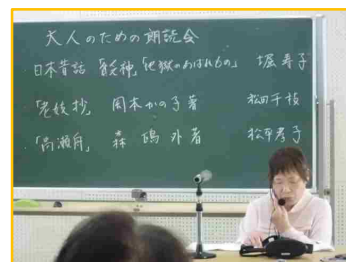 大人のための朗読会
日本昔話 「貧乏神」「地獄のあばれもの」 堀 寿子
「老妓抄」 岡本かの子著 松田千枝
「高瀬舟」 森 鴎外著 松平孝子